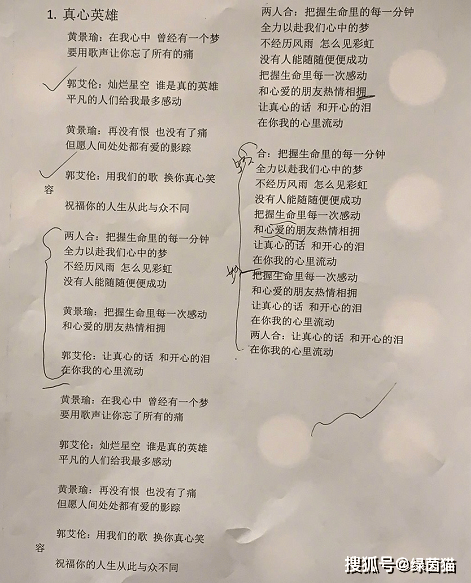 1. 真心英雄
黄景瑜：在我心中 曾经有一个梦
要用歌声让你忘了所有的痛
郭艾伦：灿烂星空 谁是真的英雄
平凡的人们给我最多感动
黄景瑜：再没有恨 也没有了痛
但愿人间处处都有爱的影踪
郭艾伦：用我们的歌 换你真心笑
容
祝福你的人生从此与众不同
两人合：把握生命里的每一分钟
全力以赴我们心中的梦
不经历风雨 怎么见彩虹
没有人能随随便便成功
黄景瑜：把握生命里每一次感动
和心爱的朋友热情相拥
郭艾伦：让真心的话 和开心的泪
在你我的心里流动
黄景瑜：在我心中 曾经有一个梦
要用歌声让你忘了所有的痛
郭艾伦：灿烂星空 谁是真的英雄
平凡的人们给我最多感动
黄景瑜：再没有恨 也没有了痛
但愿人间处处都有爱的影踪
郭艾伦：用我们的歌 换你真心笑
容
祝福你的人生从此与众不同
两人合：把握生命里的每一分钟
全力以赴我们心中的梦
不经历风雨 怎么见彩虹
没有人能随随便便成功
把握生命里每一次感动
和心爱的朋友热情相拥
让真心的话 和开心的泪
在你我的心里流动
合：把握生命里的每一分钟
全力以赴我们心中的梦
不经历风雨 怎么见彩虹
没有人能随随便便成功
把握生命里每一次感动
和心爱的朋友热情相拥
让真心的话 和开心的泪
在你我的心里流动
把握生命里每一次感动
和心爱的朋友热情相拥
让真心的话 和开心的泪
在你我的心里流动
两人合：让真心的话 和开心的泪
在你我的心里流动
搜狐号@绿茵猫